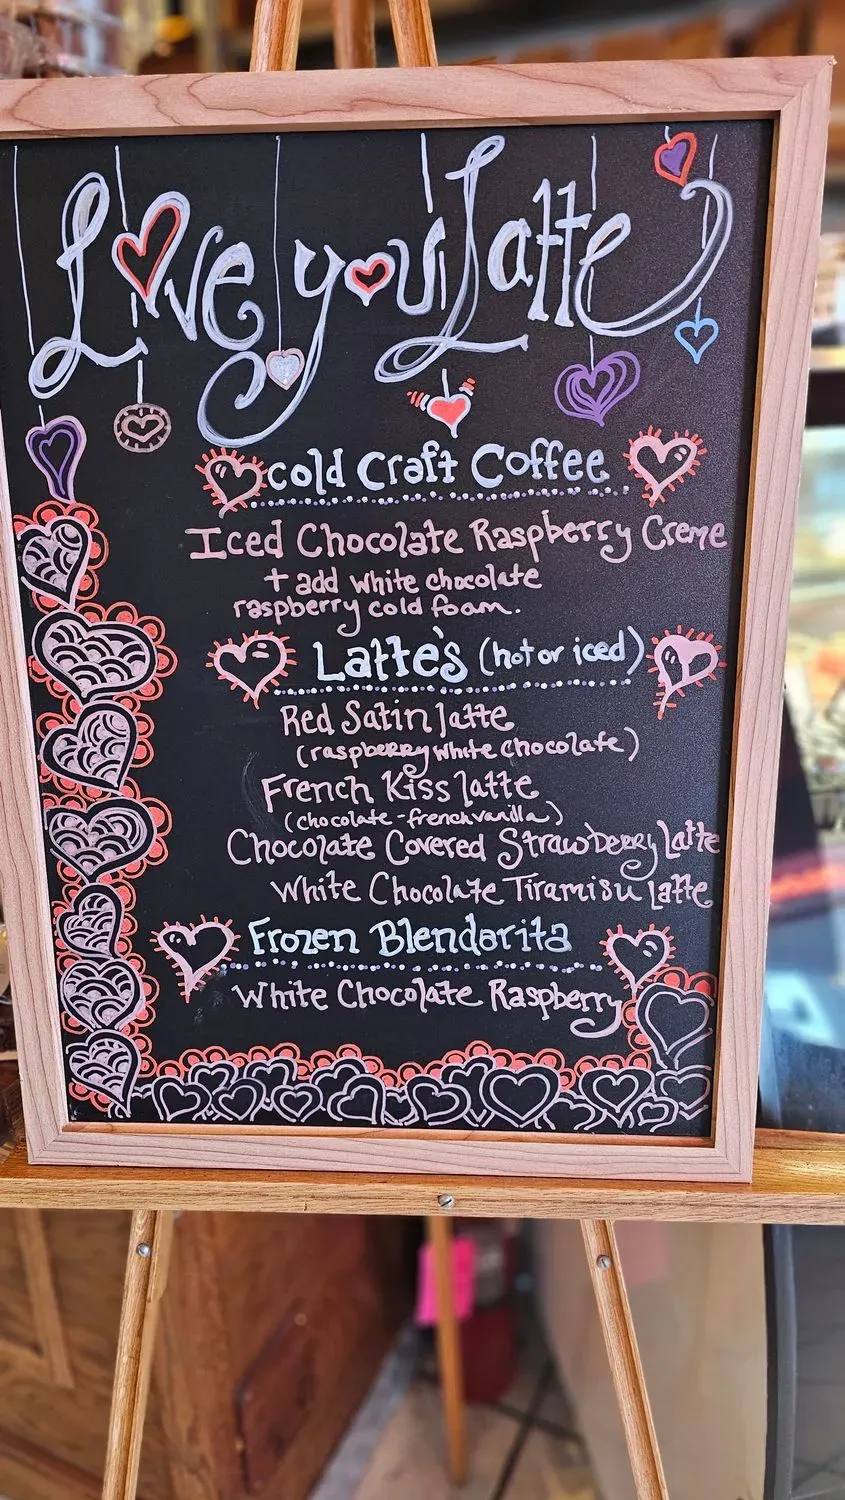 Love you Latte
Cold Craft Coffee
Iced Chocolate Raspberry Creme
+ add white chocolate
raspberry cold foam.
Latte's (hot or iced)
Red Satin latte
(raspberry white chocolate)
French Kiss latte
(chocolate - french vanilla)
Chocolate Covered Strawberry Latte
White Chocolate Tiramisu Latte
Frozen Blendarita
White Chocolate Raspberry